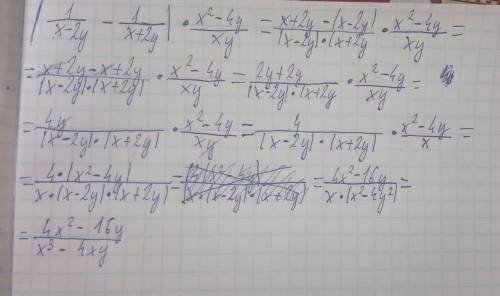 | 1/(x-2y) - 1/(x+2y) | · (x²-4y)/(xy) = (x+2y-(x-2y))/((x-2y)·(x+2y) · (x²-4y)/(xy) =
= (x+2y-x+2y)/((x-2y)·(x+2y)) · (x²-4y)/(xy) = (2y+2y)/((x-2y)·(x+2y) · (x²-4y)/(xy) =
= 4y/((x-2y)·(x+2y)) · (x²-4y)/(xy) = 4/((x-2y)·(x+2y)) · (x²-4y)/x =
= (4·(x²-4y))/(x·(x-2y)·(x+2y)) = = (4x²-16y)/(x·(x²-4y²)) =
= (4x²-16y)/(x³-4xy)